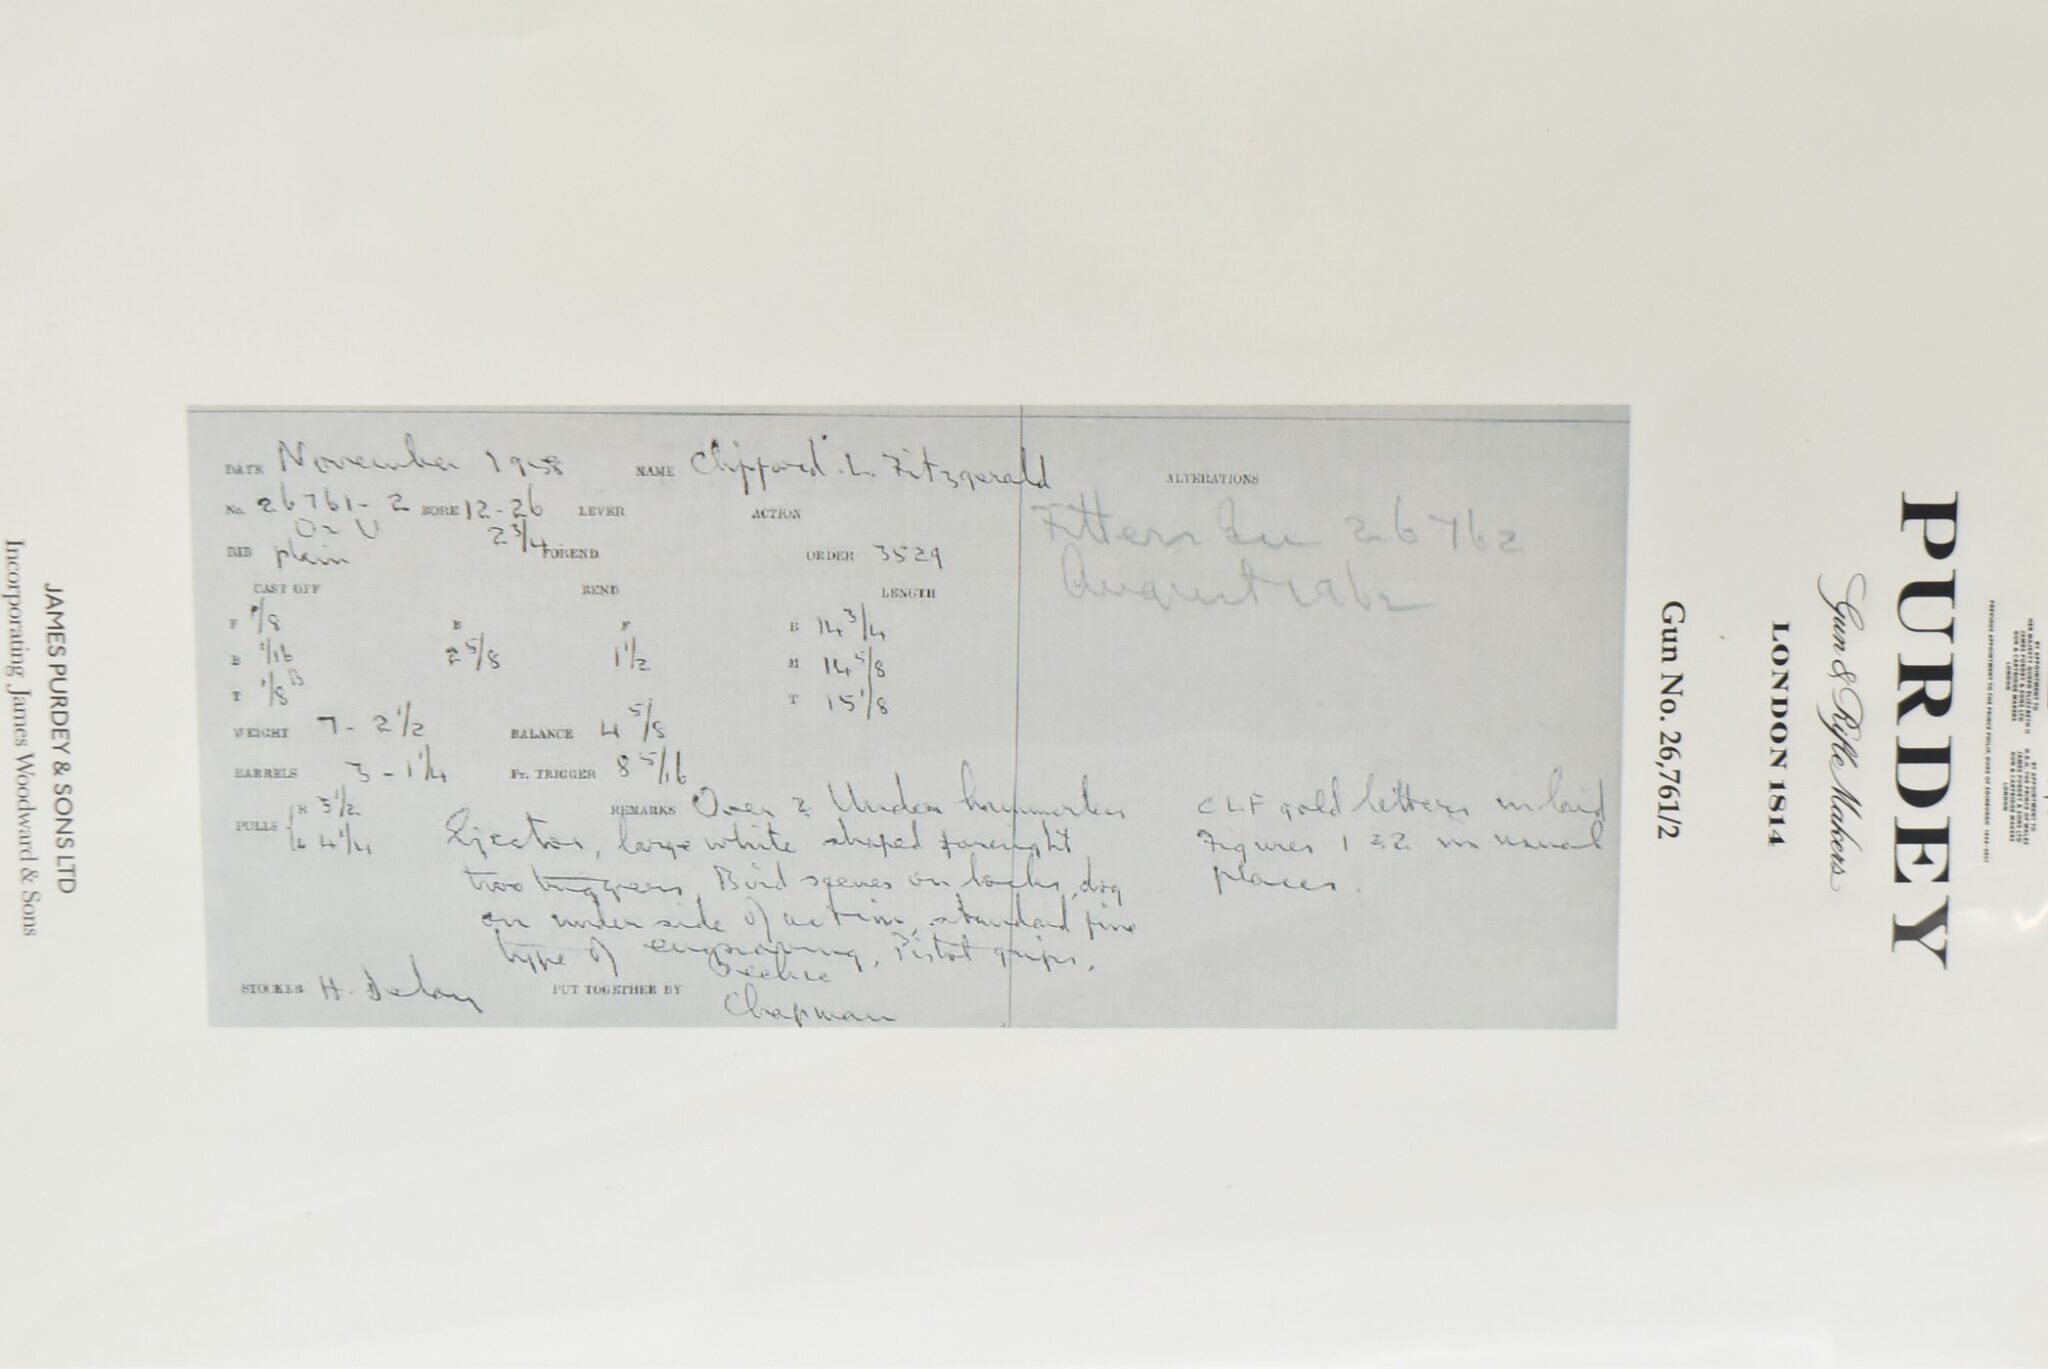 PURDEY
Gun & Rifle Makers
LONDON 1814
Gun No. 26,761/2
DATE November 1958 NAME Clifford L. Fitzgerald ALTERATIONS
No. 26761-2 BORE 12-26 LEVER ACTION
O & U 2 3/4
RIB plain FOREND ORDER 3529
Fitters In 26762
August 1962
CAST OFF BEND LENGTH
F 1/8 B F B 14 3/4
B 1/16 2 5/8 1 1/2 M 14 5/8
T 1/8 B T 15 1/8
WEIGHT 7 - 2 1/2 BALANCE 4 5/8
BARRELS 3 - 1 1/4 Fr. TRIGGER 8 5/16
PULLS R 3 1/2 REMARKS Over & Under hammerless
L 4 1/4 Ejector, large white shaped foresight
two triggers, Bird scenes on locks, dog
on underside of action, standard fine
type of engraving, Pistol grips.
CLF gold letters inlaid
Figures 1 & 2 in usual
places.
STOCKER H. Delay PUT TOGETHER BY
Chapman
JAMES PURDEY & SONS LTD
Incorporating James Woodward & Sons